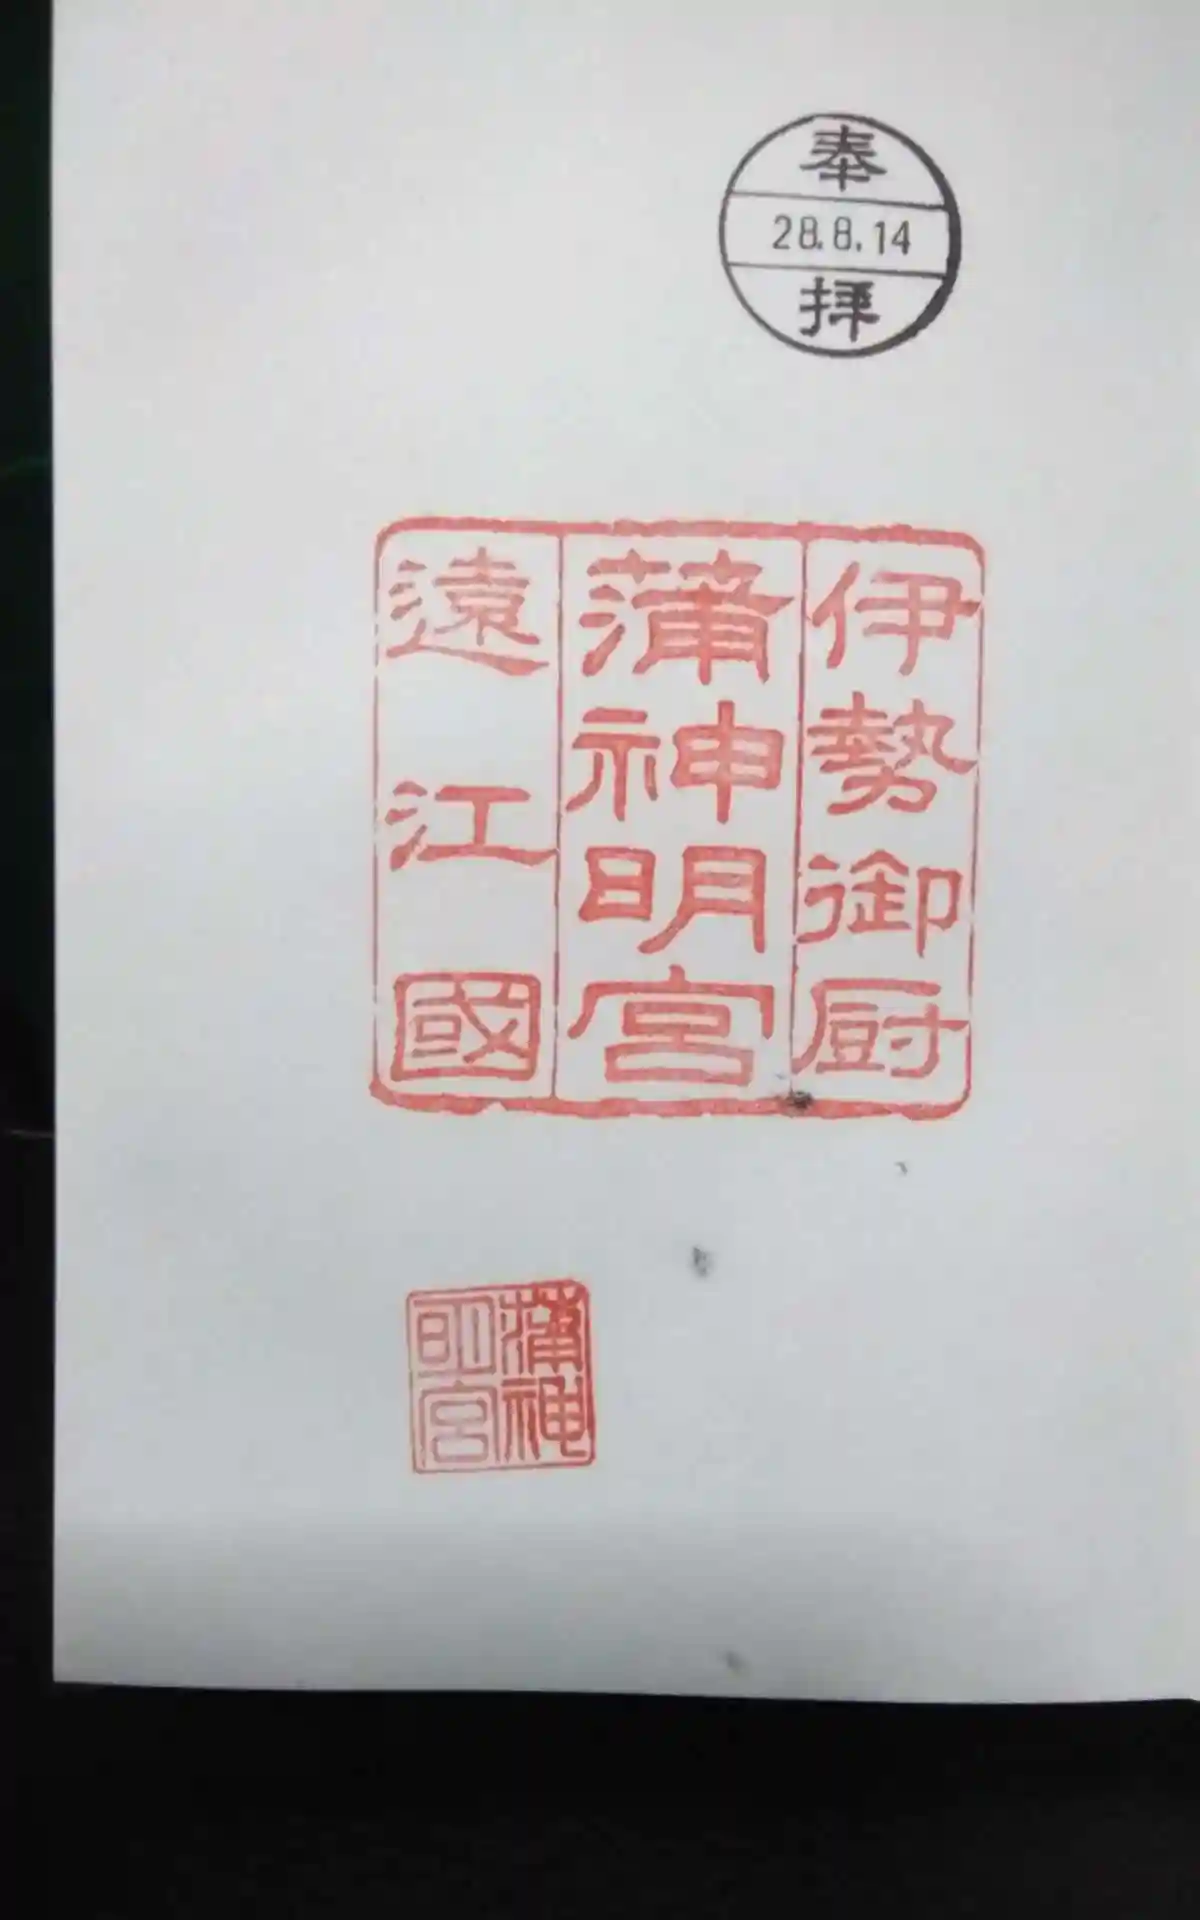 奉
28.8.14
拝
伊勢御厨
蒲神明宮
遠江國
蒲神
明宮